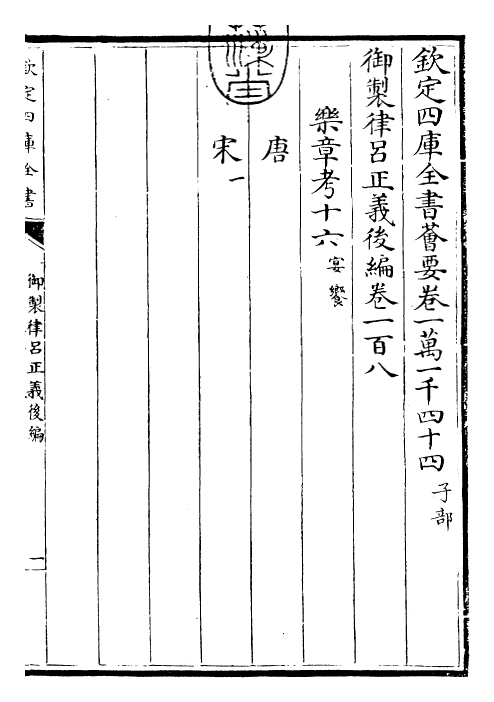 欽定四庫全書薈要卷一萬一千四十四 子部
御製律呂正義後編卷一百八
樂章考十六 宴饗
唐
宋一
欽定四庫全書
御製律呂正義後編
一